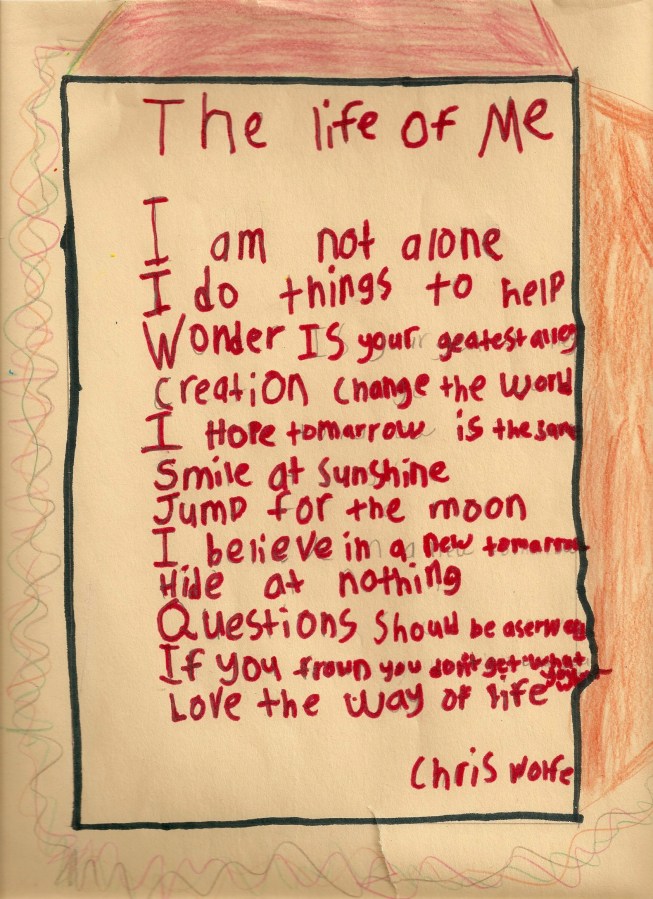 The life of Me
I am not alone
I do things to help
Wonder Is your geatest
Creation change the world
I Hope tomarrow is the same
Smile at sunshine
Jump for the moon
I believe in a new tomarrow
Hide at nothing
Questions should be
If you frown you don't get what you
Love the way of life
Chris Wolfe